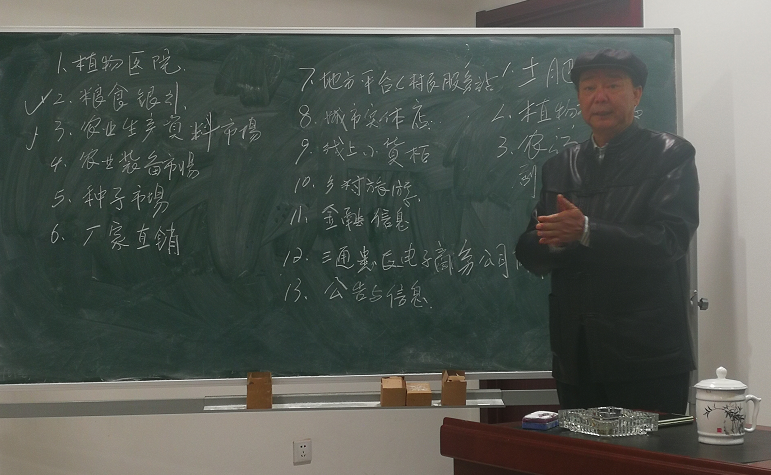 1. 植物医院.
2. 粮食银行.
3. 农业生产资料市場
4. 农业装备市場
5. 种子市場
6. 厂家直销
7. 地方平台(村民服务站
8. 城市实体店.
9. 线上小货柜
10. 乡村旅游.
11. 金融信息
12. 三通惠民电子商务公司
13. 公告与信息.
1. 土肥
2. 植物
3. 农
到